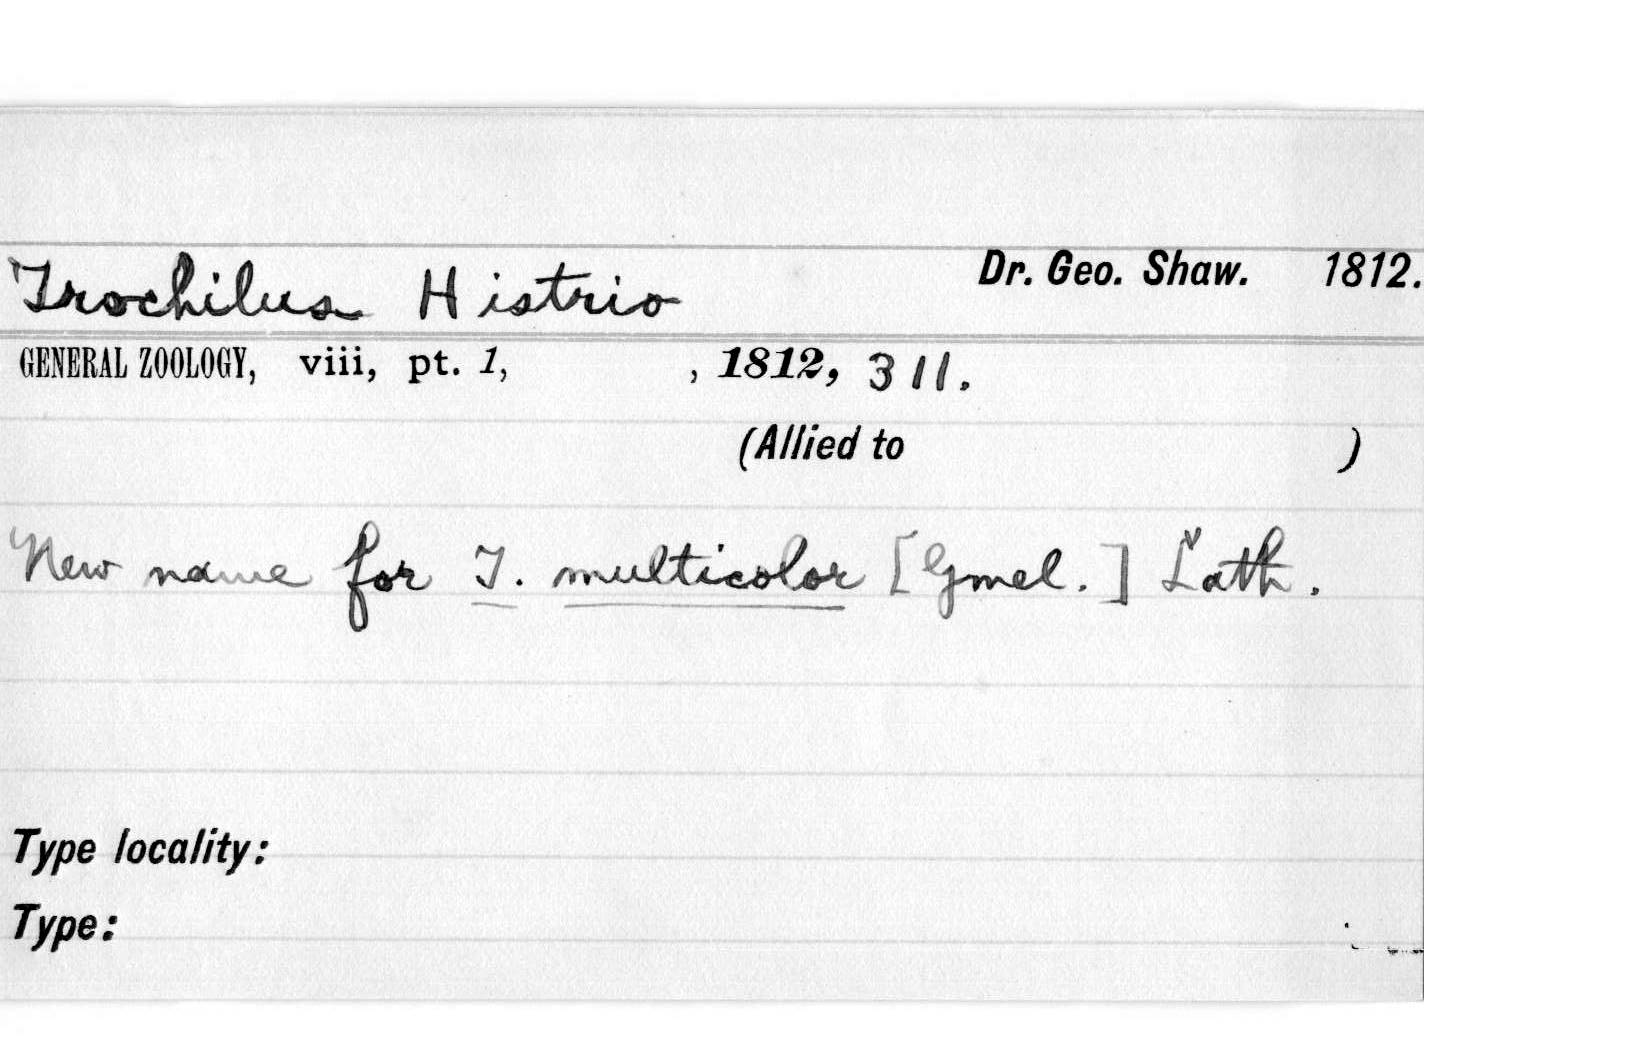 Trochilus Histrio Dr. Geo. Shaw. 1812.
GENERAL ZOOLOGY, viii, pt. 1, , 1812, 311.
(Allied to )
New name for T. multicolor [Gmel.] Lath.
Type locality:
Type: